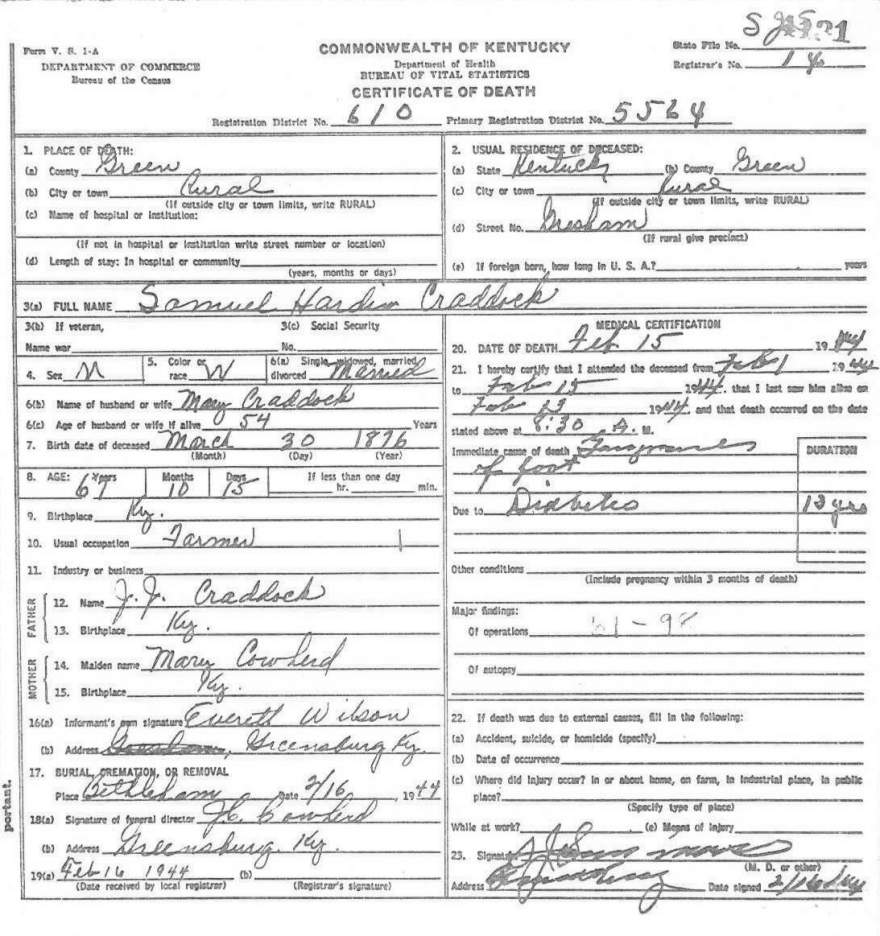 Form V. S. 1-A
DEPARTMENT OF COMMERCE
Bureau of the Census
COMMONWEALTH OF KENTUCKY
Department of Health
BUREAU OF VITAL STATISTICS
CERTIFICATE OF DEATH
State File No.
Registrar's No. 14
Registration District No. 610 Primary Registration District No. 5564
1. PLACE OF DEATH:
(a) County Green
(b) City or town Rural
(If outside city or town limits, write RURAL)
(c) Name of hospital or institution:
(If not in hospital or institution write street number or location)
(d) Length of stay: In hospital or community
(years, months or days)
2. USUAL RESIDENCE OF DECEASED:
(a) State Kentucky (b) County Green
(c) City or town Rural
(If outside city or town limits, write RURAL)
(d) Street No. Gresham
(If rural give precinct)
(e) If foreign born, how long in U. S. A.? years
3(a) FULL NAME Samuel Hardin Craddock
3(b) If veteran,
Name war
3(c) Social Security
No.
4. Sex M
5. Color or
race W
6(a) Single, widowed, married,
divorced Married
6(b) Name of husband or wife Mary Craddock
6(c) Age of husband or wife if alive 54 Years
7. Birth date of deceased March 30 1876
(Month) (Day) (Year)
8. AGE: Years Months Days If less than one day
67 10 15 hr. min.
9. Birthplace Ky.
10. Usual occupation Farmer
11. Industry or business
FATHER
12. Name J. J. Craddock
13. Birthplace Ky.
MOTHER
14. Maiden name Mary Cowherd
15. Birthplace Ky.
16(a) Informant's own signature Everett Wilson
(b) Address Gresham, Greensburg Ky.
17. BURIAL, CREMATION, OR REMOVAL
Place Bethleham Date 2/16, 1944
18(a) Signature of funeral director Cowherd
(b) Address Greensburg. Ky.
19(a) Feb 16 1944 (b)
(Date received by local registrar) (Registrar's signature)
MEDICAL CERTIFICATION
20. DATE OF DEATH Feb 15 1944
21. I hereby certify that I attended the deceased from Feb 1 1944
to Feb 15 1944. that I last saw him alive on
Feb 1944. and that death occurred on the date
stated above at 8:30 A. M.
Immediate cause of death Gangrene
of foot
DURATION
Due to Diabetes
yrs
Other conditions
(Include pregnancy within 3 months of death)
Major findings:
Of operations 61-98
Of autopsy
22. If death was due to external causes, fill in the following:
(a) Accident, suicide, or homicide (specify)
(b) Date of occurrence
(c) Where did injury occur? In or about home, on farm, in industrial place, in public
place?
(Specify type of place)
While at work? (e) Means of injury
23. Signature
(M. D. or other)
Address Date signed 2/16/44
portant.